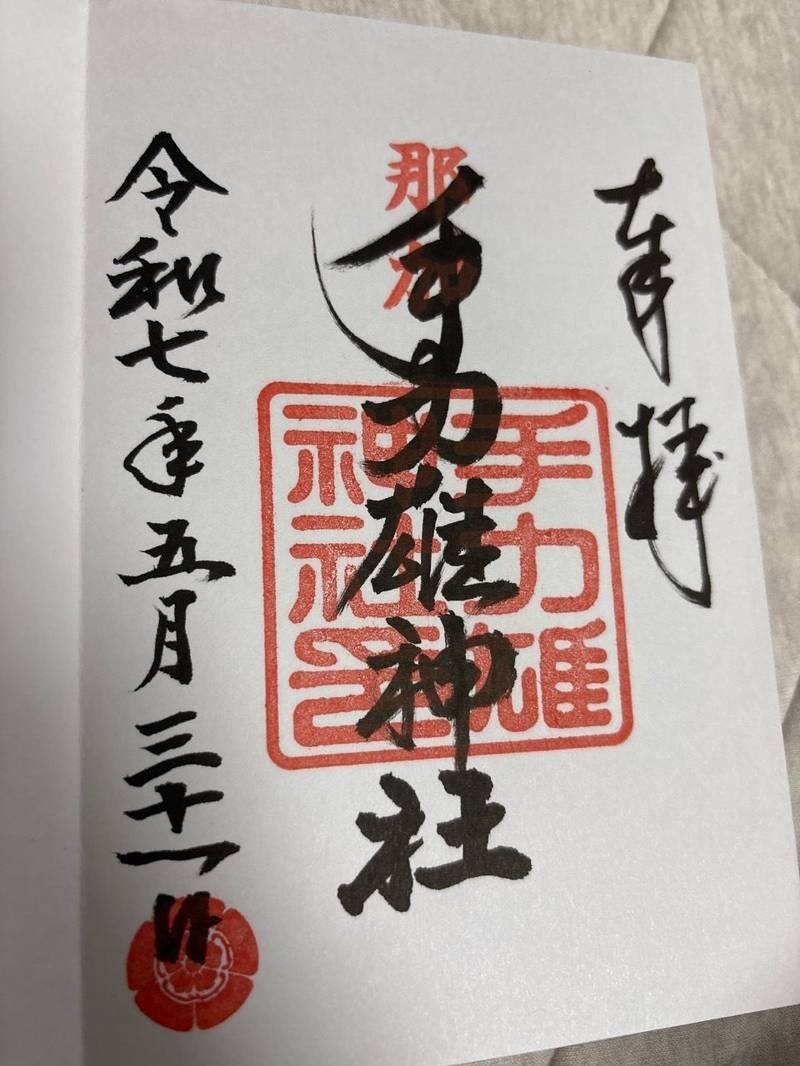 奉拝
那加
手力雄神社
手力雄
神社印
令和七年五月三十一日